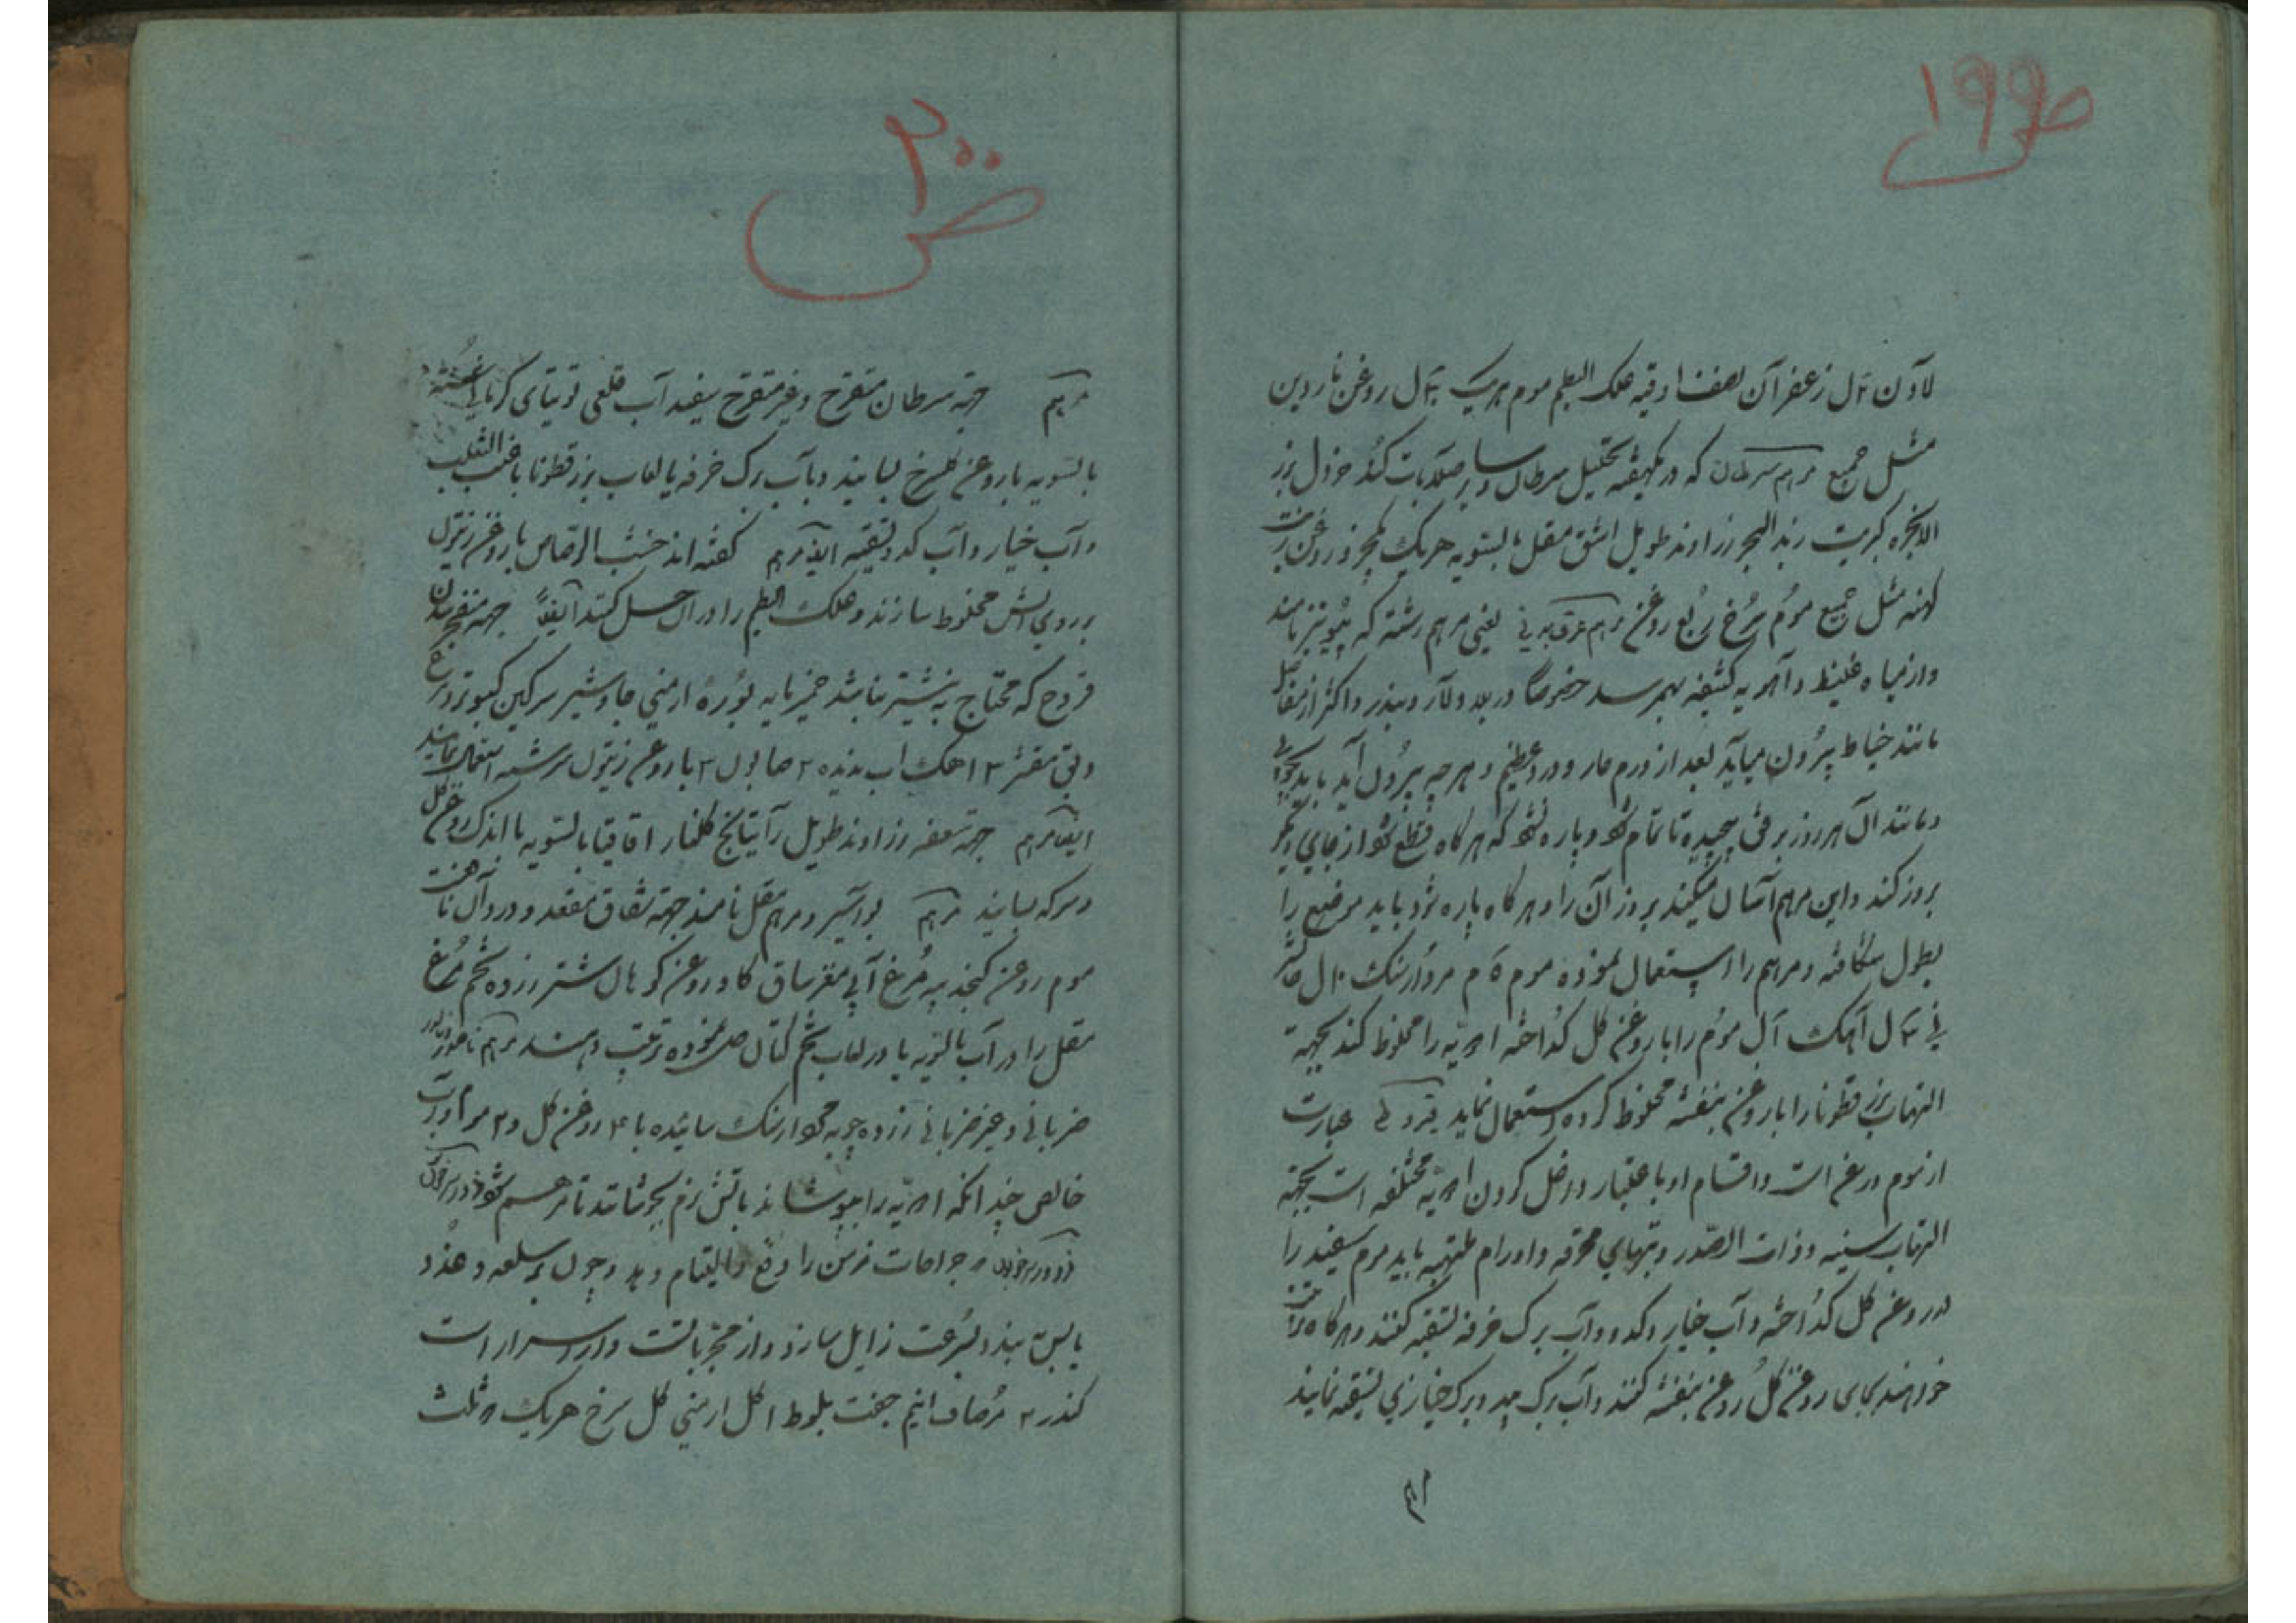 ص ۱۹۹
لادن ۲ل زعفران نصف اوقیه علک البطم موم هریک ۴ل روغن ناردین
مثل جمیع مرهم سرطان که در یکهفته تحلیل سرطان و سایر صلابات کند خردل بزر
الانجره کبریت زبد البحر زراوند طویل اشق مقل بالسویه هریک یکجزو روغن زیت
کهنه مثل جمیع موم سرخ ربع روغن مرهم عرق مدنی یعنی مرهم رشته که پیو نیز نامند
و از میاه غلیظ و اهویه کثیفه بهم رسد خصوصا در بلاد لار و بندر و اکثر از مفاصل
مانند خیاط بیرون میاید بعد از ورم حار و درد عظیم و هرچه بیرون آید باید بچوبی
و مانند آن هر روز برفق پیچیده تا تمام شود و پاره نشود که هرگاه قطع شود از جای دیگر
بروز کند و این مرهم آسان میکند بروز آن را و هرگاه پاره شود باید موضع را
بطول شکافته و مرهم را استعمال نموده موم ۵م مردارسنک ۱۰ل
۴ل آهک ل موم را با روغن کل کداخته ادویه را مخلوط کند بجهة
التهاب بزرقطونا را با روغن بنفشه مخلوط کرده استعمال نماید قیروطی عبارت
از موم روغن است و اقسام او باعتبار داخل کردن ادویه مختلفه است بجهته
التهاب سینه و ذات الصدر و تبهای محرقه و اورام ملتهبه باید موم سفید را
در روغن کل کداخته و آب خیار و کدو و آب برک خرفه تسقیه کنند و هرگاه
خواهند بجای روغن گل روغن بنفشه کنند و آب برک بید و برک خبازی تسقیه نمایند
مرهم
ص ۲۰۰
مرهم جهة سرطان متقرح و غیر متقرح سفید آب قلعی توتیای کرمانی شسته
بالسویه با روغن کل سرخ بسایند و بآب برک خرفه یا لعاب بزرقطونا یا عنب الثعلب
و آب خیار و آب کدو تسقیه ایضا مرهم کفته اند خبث الرصاص با روغن زیتون
بر روی آتش مخلوط سازند و علک البطم را در آن حل کنند ایضاً جهة منفجر شدن
قروح که محتاج به نیشتر نباشد خمیر مایه بوره ارمنی جاوشیر سرکین کبوتر
مقشر ۳ آهک آب ندیده ۲ صابون ۲ با روغن زیتون سرشته استعمال نمایند
ایضا مرهم جهة سعفه زراوند طویل راتیانج کلنار اقاقیا بالسویه با اندک روغن کل
و سرکه بسایند مرهم بواسیر و مرهم مقل نامند جهة شقاق مقعد و درد آن نافعست
موم روغن کنجد پیه مرغ آبی مغز ساق کاو روغن کوهان شتر زرده تخم مرغ
مقل را در آب بالسویه یا در لعاب تخم کتان حل نموده ترتیب دهند مرهم ناصور
ضربانی و غیر ضربانی زرده چوبه مردارسنک سائیده با ۴ روغن کل و ۲ موم و آب
خالص چندانکه ادویه را بپوشاند باتش نرم بجوشانند تا مرهم شود ذرور سرخون
ذرور سرخون جراحات مزمن را رفع و التیام دهد و چون بر سلعه و غدد
یابس بندد بسرعت زایل سازد و از مجربات است و از اسرار است
کندر ۲ مرصاف انیم جفت بلوط ۱ کل ارمنی کل سرخ هریک ثلث